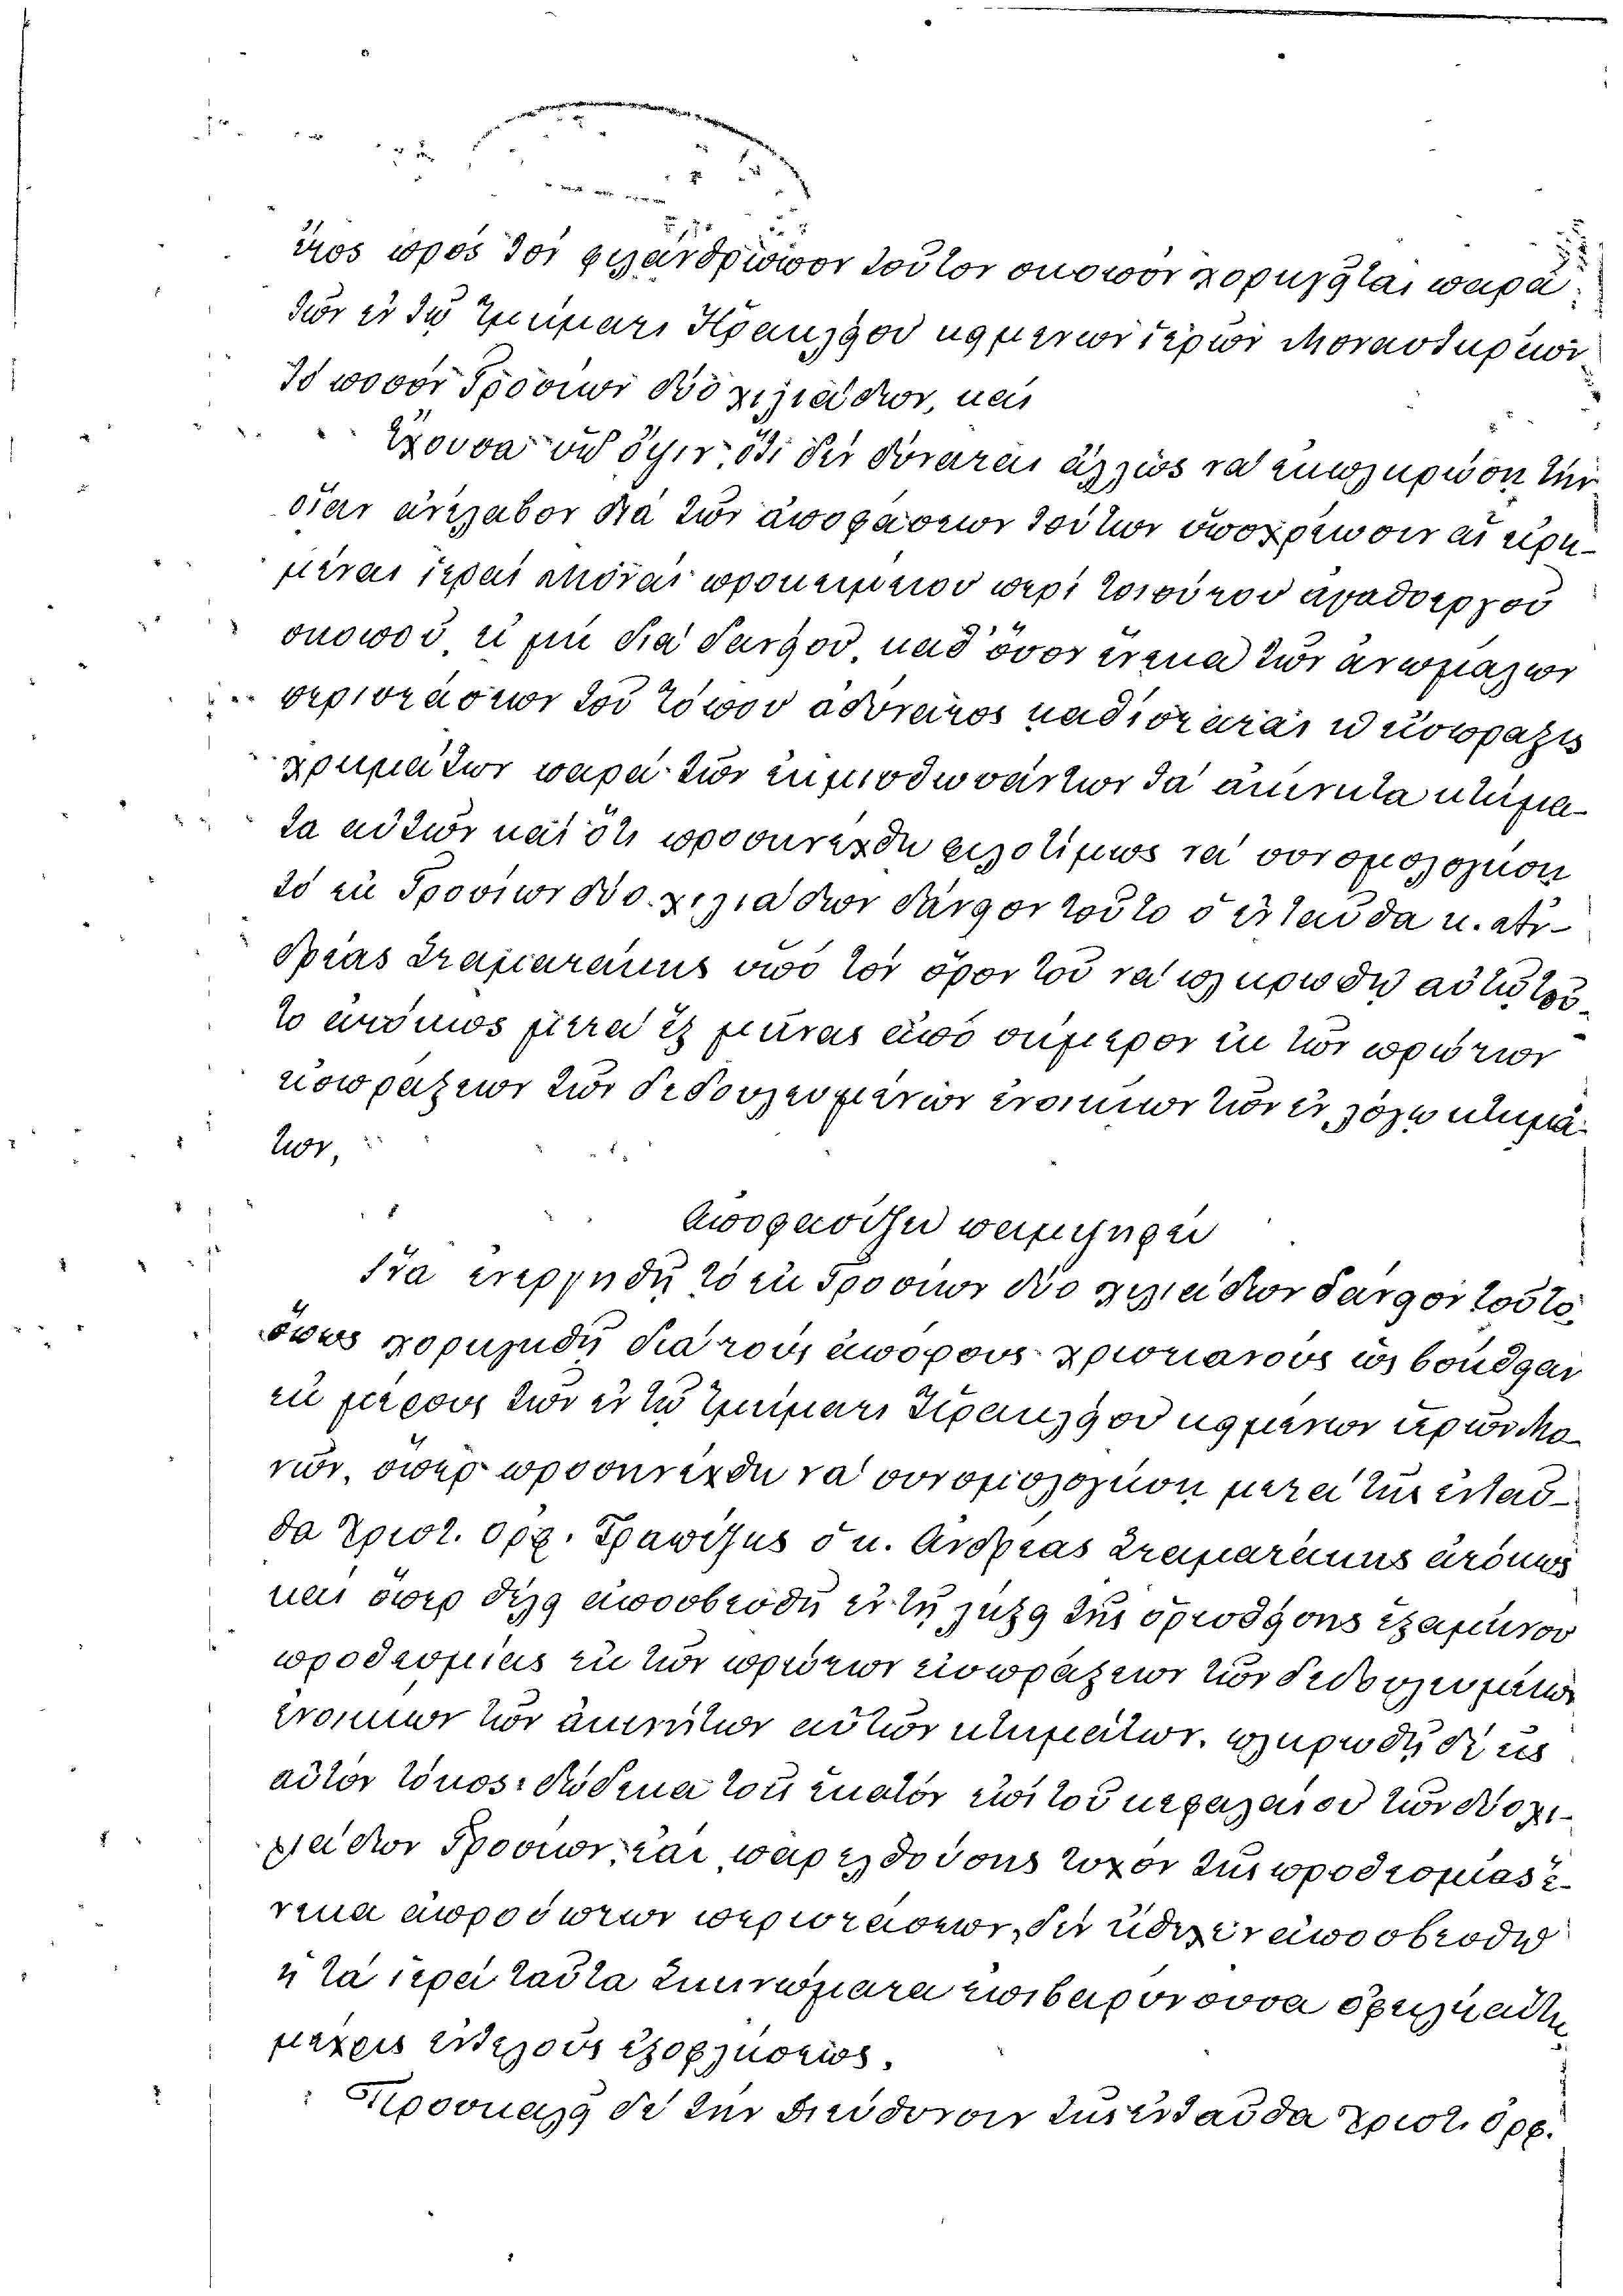 τιος πρὸς τὸν φιλάνθρωπον τοῦτον σκοπὸν χορηγῆται παρὰ
τῶν ἐν τῷ τμήματι Ἡρακλείου κειμένων ἱερῶν Μοναστηρίων
τὸ ποσὸν γροσίων δύο χιλιάδων, καὶ
Ἔχουσα ὑπ' ὄψιν, ὅτι δὲν δύναται ἄλλως νὰ ἐκπληρώσῃ τὴν
ὁποίαν ἀνέλαβον διὰ τῶν ἀποφάσεων τούτων ὑποχρέωσιν αἱ εἰρη-
μέναι ἱεραὶ Μοναὶ προκειμένου περὶ τοιούτου ἀγαθοεργοῦ
σκοποῦ, εἰ μὴ διὰ δανείου, καθ' ὅσον ἕνεκα τῶν ἀνωμάλων
περιστάσεων τοῦ τόπου ἀδύνατος καθίσταται ἡ εἴσπραξις
χρημάτων παρὰ τῶν ἐκμισθωσάντων τὰ ἀκίνητα κτήμα-
τα αὐτῶν καὶ ὅτι προσηνέχθη φιλοτίμως νὰ συνομολογήσῃ
τὸ ἐκ γροσίων δύο χιλιάδων δάνειον τοῦτο ὁ ἐνταῦθα κ. Ἀν-
δρέας Σταματάκης ὑπὸ τὸν ὅρον τοῦ νὰ πληρωθῇ αὐτῷ τοῦ-
το ἀτόκως μετὰ ἓξ μῆνας ἀπὸ σήμερον ἐκ τῶν πρώτων
εἰσπράξεων τῶν δεδουλευμένων ἐνοικίων τῶν ἐν λόγῳ κτημά-
των,
Ἀποφασίζει παμψηφεὶ
Ἵνα ἐνεργηθῇ τὸ ἐκ γροσίων δύο χιλιάδων δάνειον τοῦτο,
ὅπως χορηγηθῇ διὰ τοὺς ἀπόρους χριστιανοὺς ὡς βοήθεια
ἐκ μέρους τῶν ἐν τῷ τμήματι Ἡρακλείου κειμένων ἱερῶν Μο-
νῶν, ὅπερ προσηνέχθη νὰ συνομολογήσῃ μετὰ τῆς ἐνταῦ-
θα Χριστ. Ὀρφ. Τραπέζης ὁ κ. Ἀνδρέας Σταματάκης ἀτόκως
καὶ ὅπερ θέλει ἀποσβεσθῇ ἐν τῇ λήξει τῆς ὁρισθείσης ἑξαμήνου
προθεσμίας ἐκ τῶν πρώτων εἰσπράξεων τῶν δεδουλευμένων
ἐνοικίων τῶν ἀκινήτων αὐτῶν κτημάτων. πληρωθῇ δὲ εἰς
αὐτὸν τόκος δώδεκα τοῖς ἑκατὸν ἐπὶ τοῦ κεφαλαίου τῶν δύο χι-
λιάδων γροσίων, ἐὰν, παρελθούσης τυχὸν τῆς προθεσμίας ἕ-
νεκα ἀπροόπτων περιστάσεων, δὲν ἤθελεν ἀποσβεσθῇ
ἡ τὰ ἱερὰ ταῦτα Σκηνώματα ἐπιβαρύνουσα ὀφειλὴ αὕτη
μέχρις ἐντελοῦς ἐξοφλήσεως.
Προσκαλεῖ δὲ τὴν Διεύθυνσιν τῆς ἐνταῦθα Χριστ. Ὀρφ.